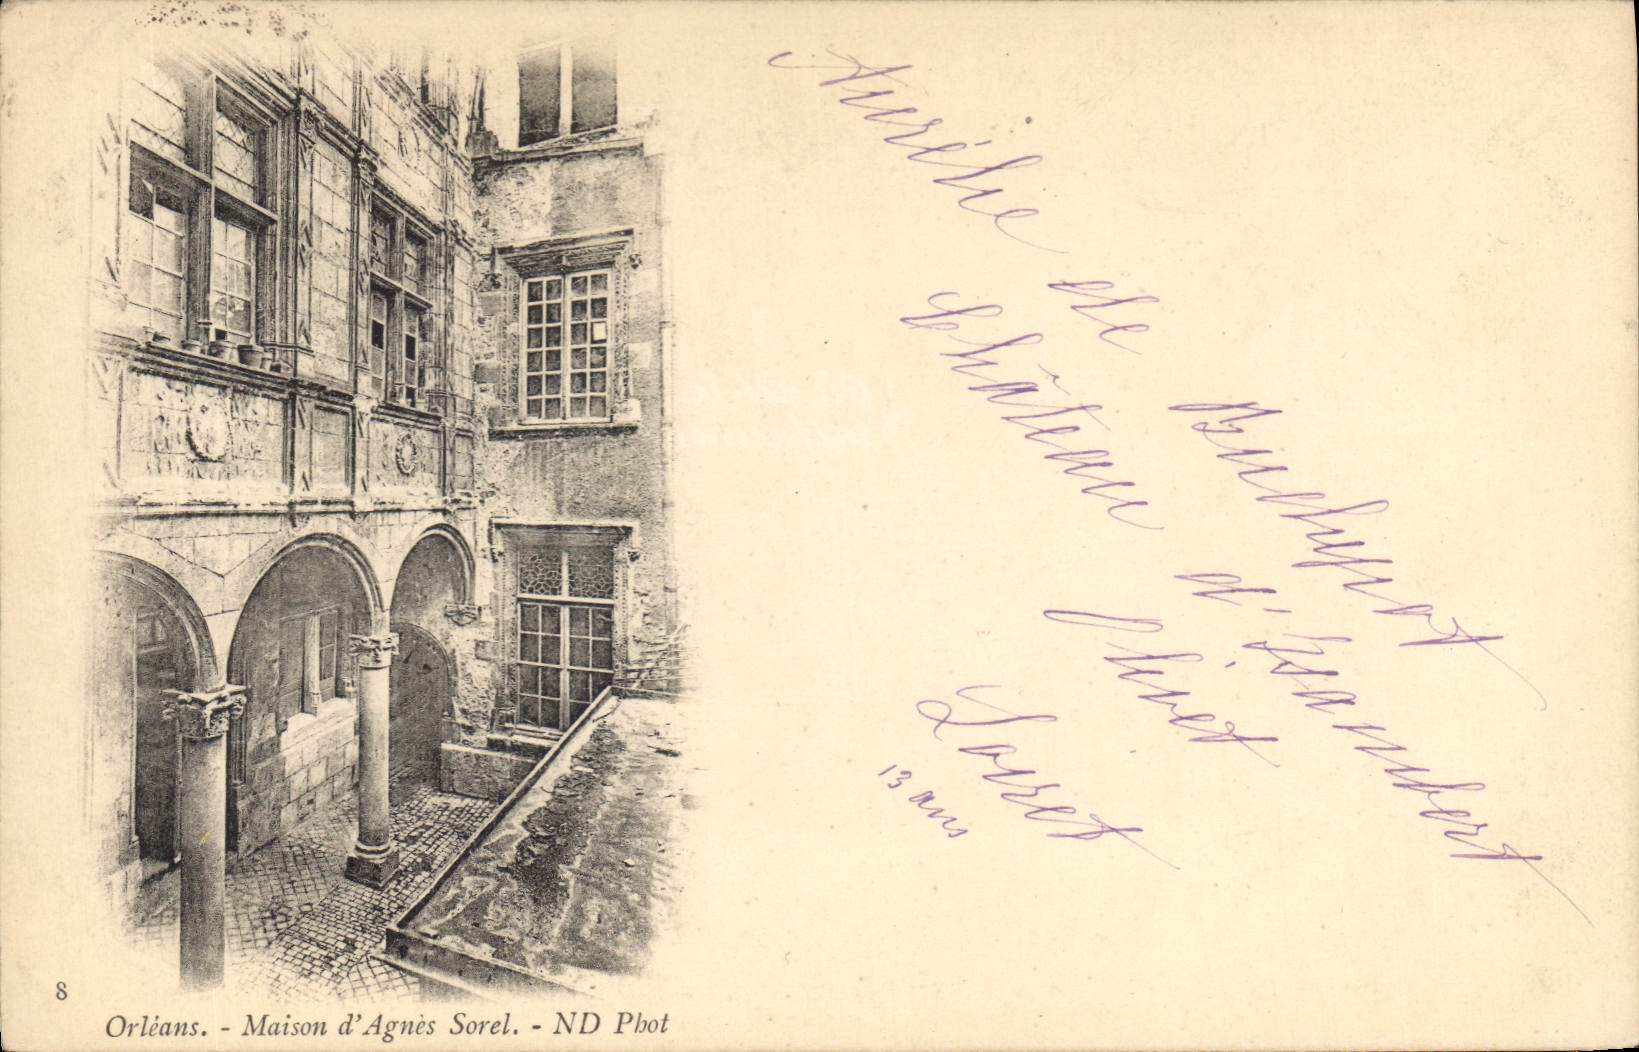 Aurélie de
Château d'Isambert
Chivet
Loiret
13 ans
8
Orléans. - Maison d'Agnès Sorel. - ND Phot